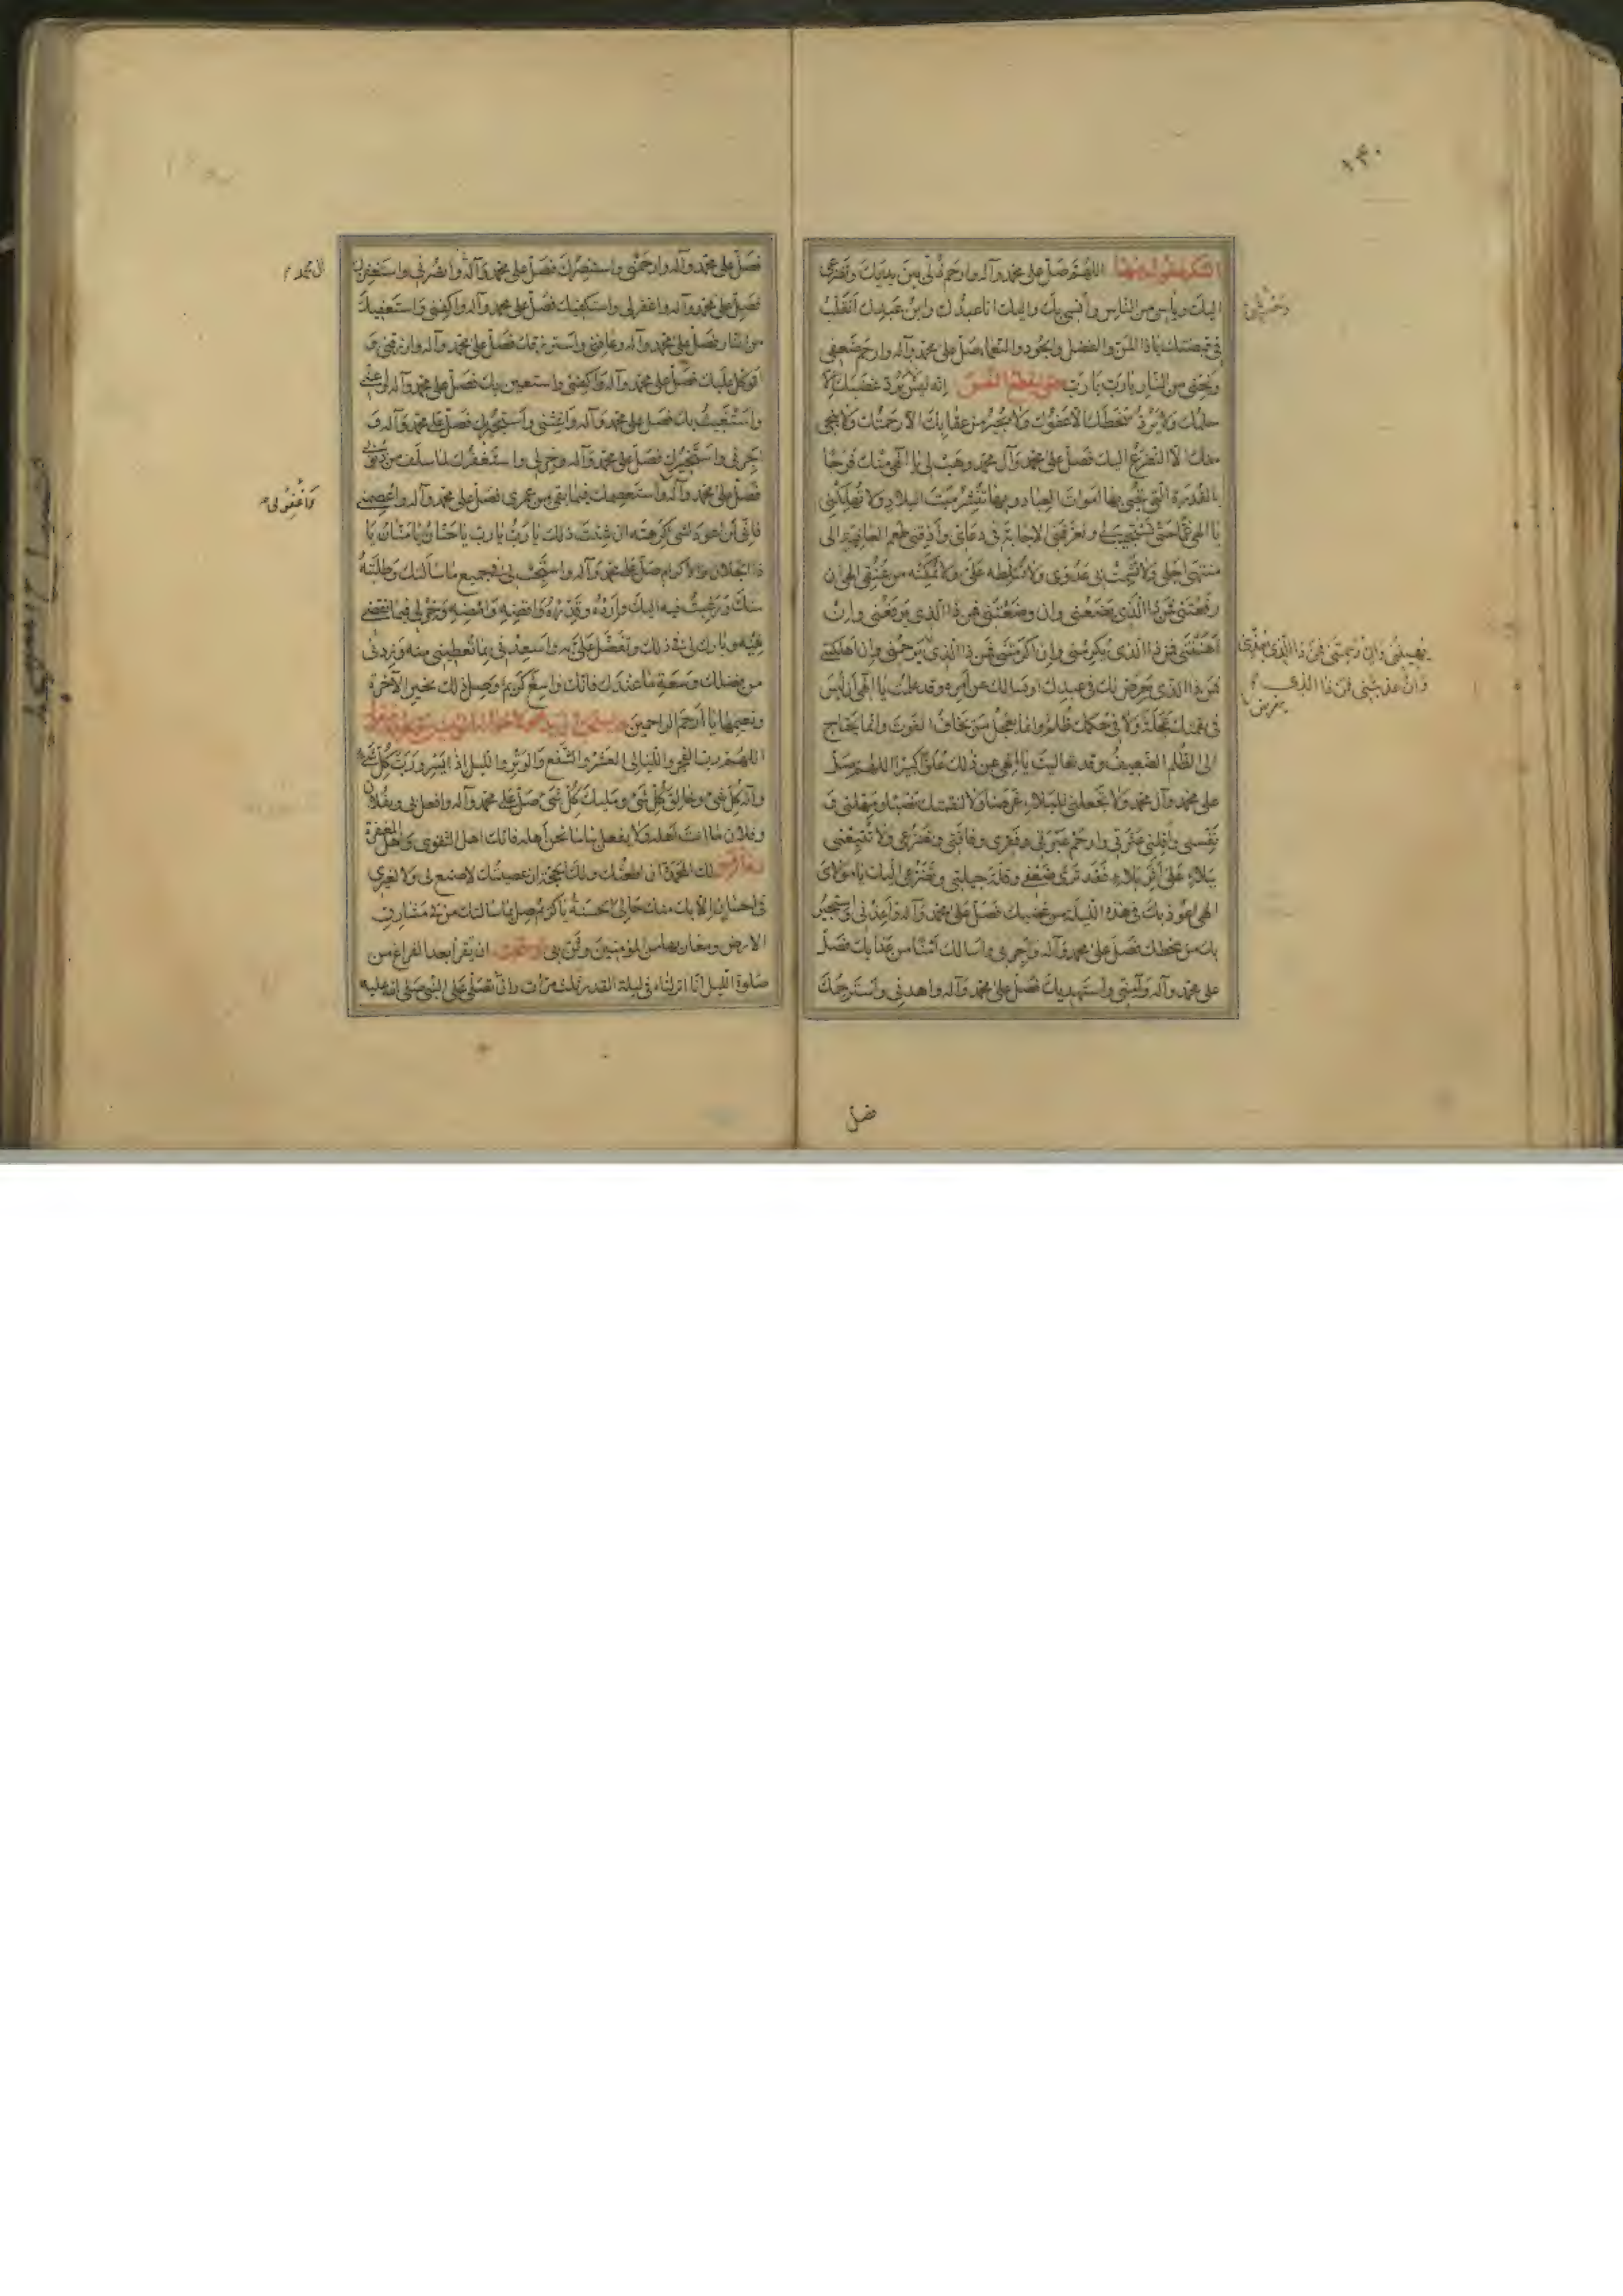 ١٣٠
الشكر فقولي فيها اللهم صل على محمد وآله وارحم ذلي بين يديك وتضرعي
اليك ووحشتي من الناس وأنسي بك واليك انا عبدك وابن عبديك أتقلب
في قبضتك يا ذا المن والفضل والجود والنعماء صل على محمد وآله وارحم ضعفي
ونجني من النار يا رب يا رب حتى ينقطع النفس إنه ليس يرد غضبك إلا
حلمك ولا يرد سخطك الا عفوك ولا يجير من عقابك الا رحمتك ولا ينجي
منك الا التضرع اليك فصل على محمد وآل محمد وهب لي يا إلهي منك فرجا
بالقدرة التي تحيي بها اموات العباد وبها تنشر ميت البلاد ولا تهلكني
يا الهي غما حتى تستجيب لي وتعرفني الاجابة في دعائي وأذقني طعم العافية الى
منتهى اجلي ولا تشمت بي عدوي ولا تسلطه علي ولا تمكنه من عنقي الهي ان
رفعتني فمن ذا الذي يضعني وان وضعتني فمن ذا الذي يرفعني وان
أهنتني فمن ذا الذي يكرمني وإن اكرمتني فمن ذا الذي يرحمني وان اهلكتني
فمن ذا الذي يعرض لك في عبدك او يسالك عن أمره وقد علمت يا الهي أن ليس
في نقمتك عجلة ولا في حكمك ظلم وانما يعجل من يخاف الفوت وانما يحتاج
الى الظلم الضعيف وقد تعاليت يا الهي عن ذلك علوا كبيرا اللهم صل
على محمد وآل محمد ولا تجعلني للبلاء غرضا ولا لنقمتك نصبا ومهلني و
نفسني وأقلني عثرتي وارحم عبرتي وفقري وفاقتي وتضرعي ولا تتبعني
ببلاء على أثر بلاء فقد ترى ضعفي وقلة حيلتي وتضرعي اليك يا مولاي
الهي اعوذ بك في هذه الليلة من غضبك فصل على محمد وآله وأعذني واستجير
بك من سخطك فصل على محمد وآله وأجرني واسالك أمنا من عذابك فصل
على محمد وآله وآمني وأستهديك فصل على محمد وآله واهدني وأسترحمك
يهينني وان رحمتني فمن ذا الذي يعذبني
وان عذبتني فمن ذا الذي
فصل
فصل على محمد وآله وارحمني واستنصرك فصل على محمد وآله وانصرني واستغفرك
فصل على محمد وآله واغفر لي واستكفيك فصل على محمد وآله واكفني واستعفيك
من النار فصل على محمد وآله وعافني واسترزقك فصل على محمد وآله وارزقني و
أتوكل عليك فصل على محمد وآله واكفني واستعين بك فصل على محمد وآله وأعني
واستغيث بك فصل على محمد وآله واغثني وأستجيرك فصل على محمد وآله و
اجرني واستخيرك فصل على محمد وآله وخر لي واستغفرك لما سلف من ذنوبي
فصل على محمد وآله واستعصمك فيما بقي من عمري فصل على محمد وآله واعصمني
فإني لن اعود لشيء كرهته ان شئت ذلك يا رب يا رب يا حنان يا منان يا
ذا الجلال والاكرام صل على محمد وآله واستجب لي في جميع ما سألتك وطلبته
منك ورغبت فيه اليك وأرده وقدره واقضه وامضه وخر لي فيما تقضي
فيه وبارك لي في ذلك وتفضل علي به واسعدني بما تعطيني منه وزدني
من فضلك وسعة ما عندك فانك واسع كريم وصل ذلك بخير الآخرة
ونعيمها يا أرحم الراحمين
اللهم رب الفجر والليالي العشر والشفع والوتر والليل اذا يسر ورب كل شيء
وإله كل شيء وخالق كل شيء ومليك كل شيء صل على محمد وآله وافعل بي وبفلان
وفلان ما انت أهله ولا تفعل بنا ما نحن أهله فانك اهل التقوى واهل المغفرة
لك المحمدة ان اطعتك ولك الحجة ان عصيتك لا صنع لي ولا لغيري
في احسان الا بك منك حالي الحسنة يا كريم صل بما سالتك من في مشارق
الارض ومغاربها من المؤمنين وثن بي ان يقرأ بعد الفراغ من
صلوة الليل انا انزلناه في ليلة القدر ثلث مرات وان تصلي على النبي صلى الله عليه
آل محمد
فاغفر لي